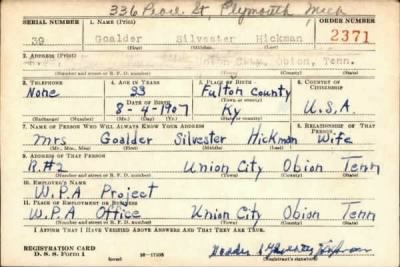 336 Pearl St Plymouth Mich
SERIAL NUMBER 1. NAME (Print) ORDER NUMBER
39 Goalder Silvester Hickman 2371
(First) (Middle) (Last)
2. ADDRESS (Print)
Union City, Obion, Tenn.
(Number and street or R. F. D. number) (Town) (County) (State)
3. TELEPHONE 4. AGE IN YEARS 5. PLACE OF BIRTH 6. COUNTRY OF CITIZENSHIP
None 33 Fulton County
DATE OF BIRTH (Town or county)
8-4-1907 Ky U.S.A.
(Mo.) (Day) (Yr.) (State or country)
7. NAME OF PERSON WHO WILL ALWAYS KNOW YOUR ADDRESS 8. RELATIONSHIP OF THAT PERSON
Mrs Goalder Silvester Hickman Wife
(Mr., Mrs., Miss) (First) (Middle) (Last)
9. ADDRESS OF THAT PERSON
R.#2 Union City Obion Tenn
(Number and street or R. F. D. number) (Town) (County) (State)
10. EMPLOYER'S NAME
W.P.A Project
11. PLACE OF EMPLOYMENT OR BUSINESS
W.P.A Office Union City Obion Tenn
(Number and street or R. F. D. number) (Town) (County) (State)
I AFFIRM THAT I HAVE VERIFIED ABOVE ANSWERS AND THAT THEY ARE TRUE.
REGISTRATION CARD
D. S. S. Form 1 (over) 16-17105 (Registrant's signature)